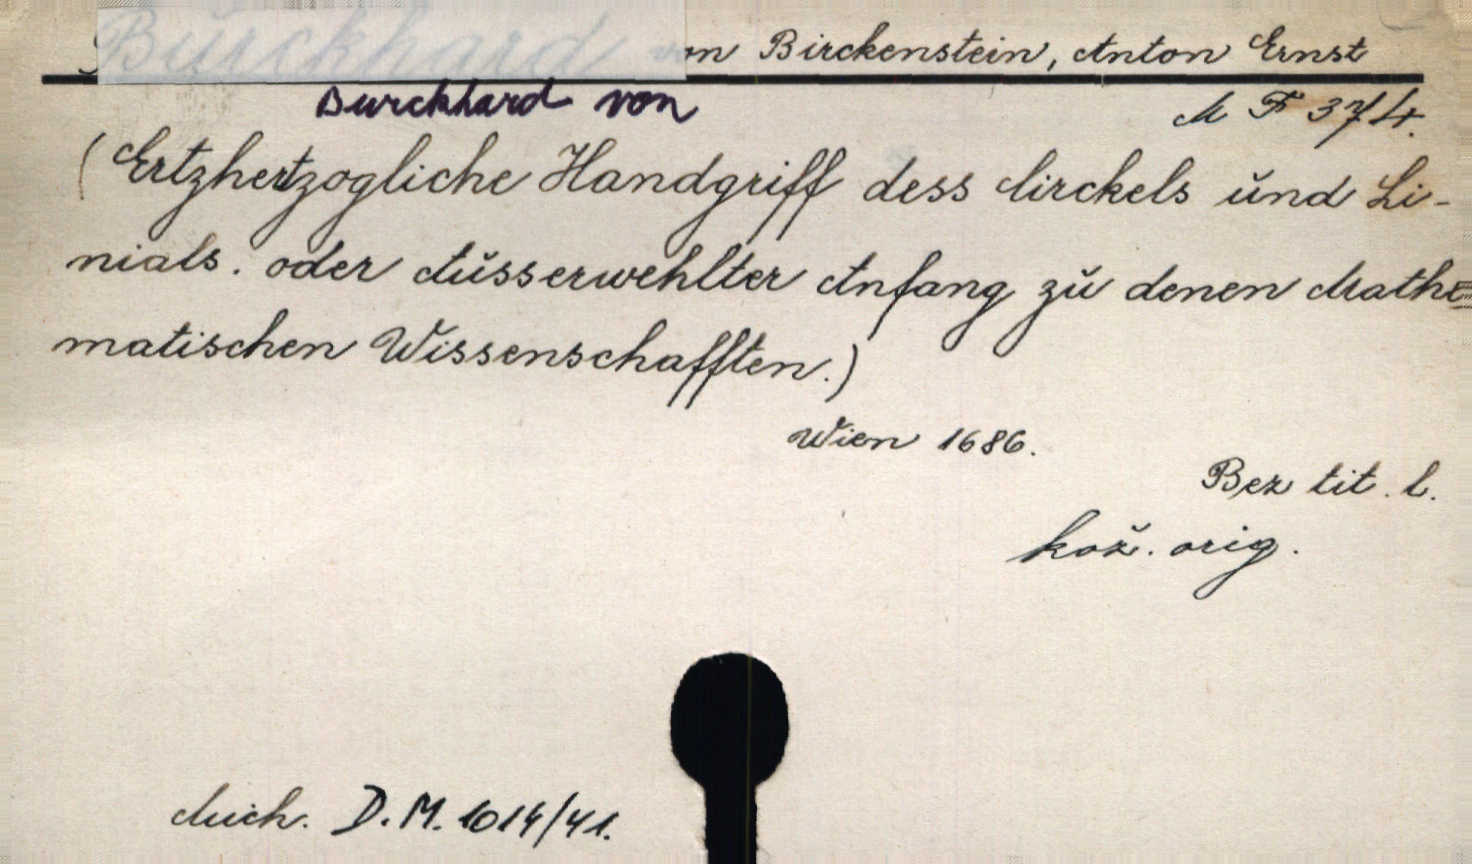 Burckhard von Birckenstein, Anton Ernst
Burckhard von
M F 374.
(Ertzhertzogliche Handgriff dess Circkels und Li-
nials. oder Ausserwehlter Anfang zu denen Mathe=
matischen Wissenschafften.)
Wien 1686.
Bez tit. l.
kož. orig.
Mich. D.M. 1014/41.